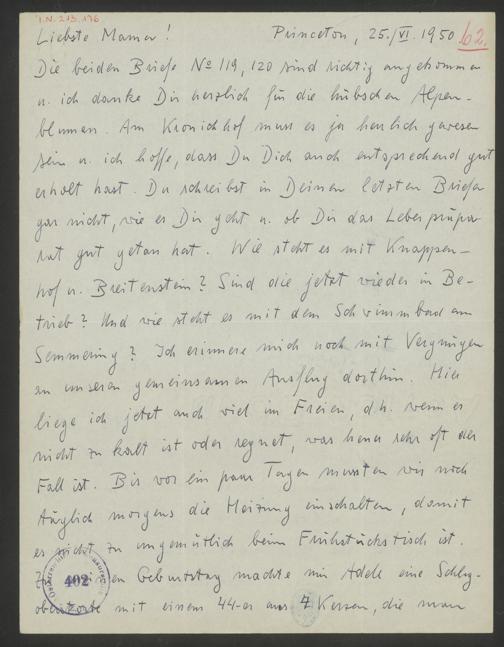 I.N. 213.196
Liebste Mama! Princeton, 25./VI. 1950 62.
Die beiden Briefe No 119, 120 sind richtig angekommen
u. ich danke Dir herzlich für die hübschen Alpen-
blumen. Am Kronichhof muss es ja herrlich gewesen
sein u. ich hoffe, dass Du Dich auch entsprechend gut
erholt hast. Du schreibst in Deinen letzten Briefen
gar nicht, wie es Dir geht u. ob Dir das Leberpräpa-
rat gut getan hat. Wie steht es mit Knappen-
hof u. Breitenstein? Sind die jetzt wieder in Be-
trieb? Und wie steht es mit dem Schwimmbad am
Semmering? Ich erinnere mich noch mit Vergnügen
an unseren gemeinsamen Ausflug dorthin. Hier
liege ich jetzt auch viel im Freien, d.h. wenn es
nicht zu kalt ist oder regnet, was heuer sehr oft der
Fall ist. Bis vor ein paar Tagen mussten wir noch
täglich morgens die Heizung einschalten, damit
es nicht zu ungemütlich beim Frühstückstisch ist.
Geburtstag machte mir Adele eine Schlag-
oberstorte mit einem 44-er aus 7 Kerzen, die man
402